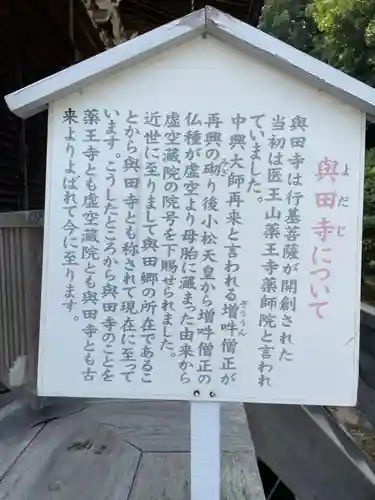 與田寺について
よだじ
與田寺は行基菩薩が開創された
当初は医王山薬王寺薬師院と言われ
ていました。
中興大師再来と言われる増吽僧正が
ぞううん
再興の砌り後小松天皇から増吽僧正の
みぎ
仏種が虚空より母胎に蔵まった由来から
虚空蔵院の院号を下賜せられました。
近世に至りまして與田郷の所在であるこ
とから與田寺とも称されて現在に至って
います。こうしたところから與田寺のことを
薬王寺とも虚空蔵院とも與田寺とも古
来よりよばれて今に至ります。